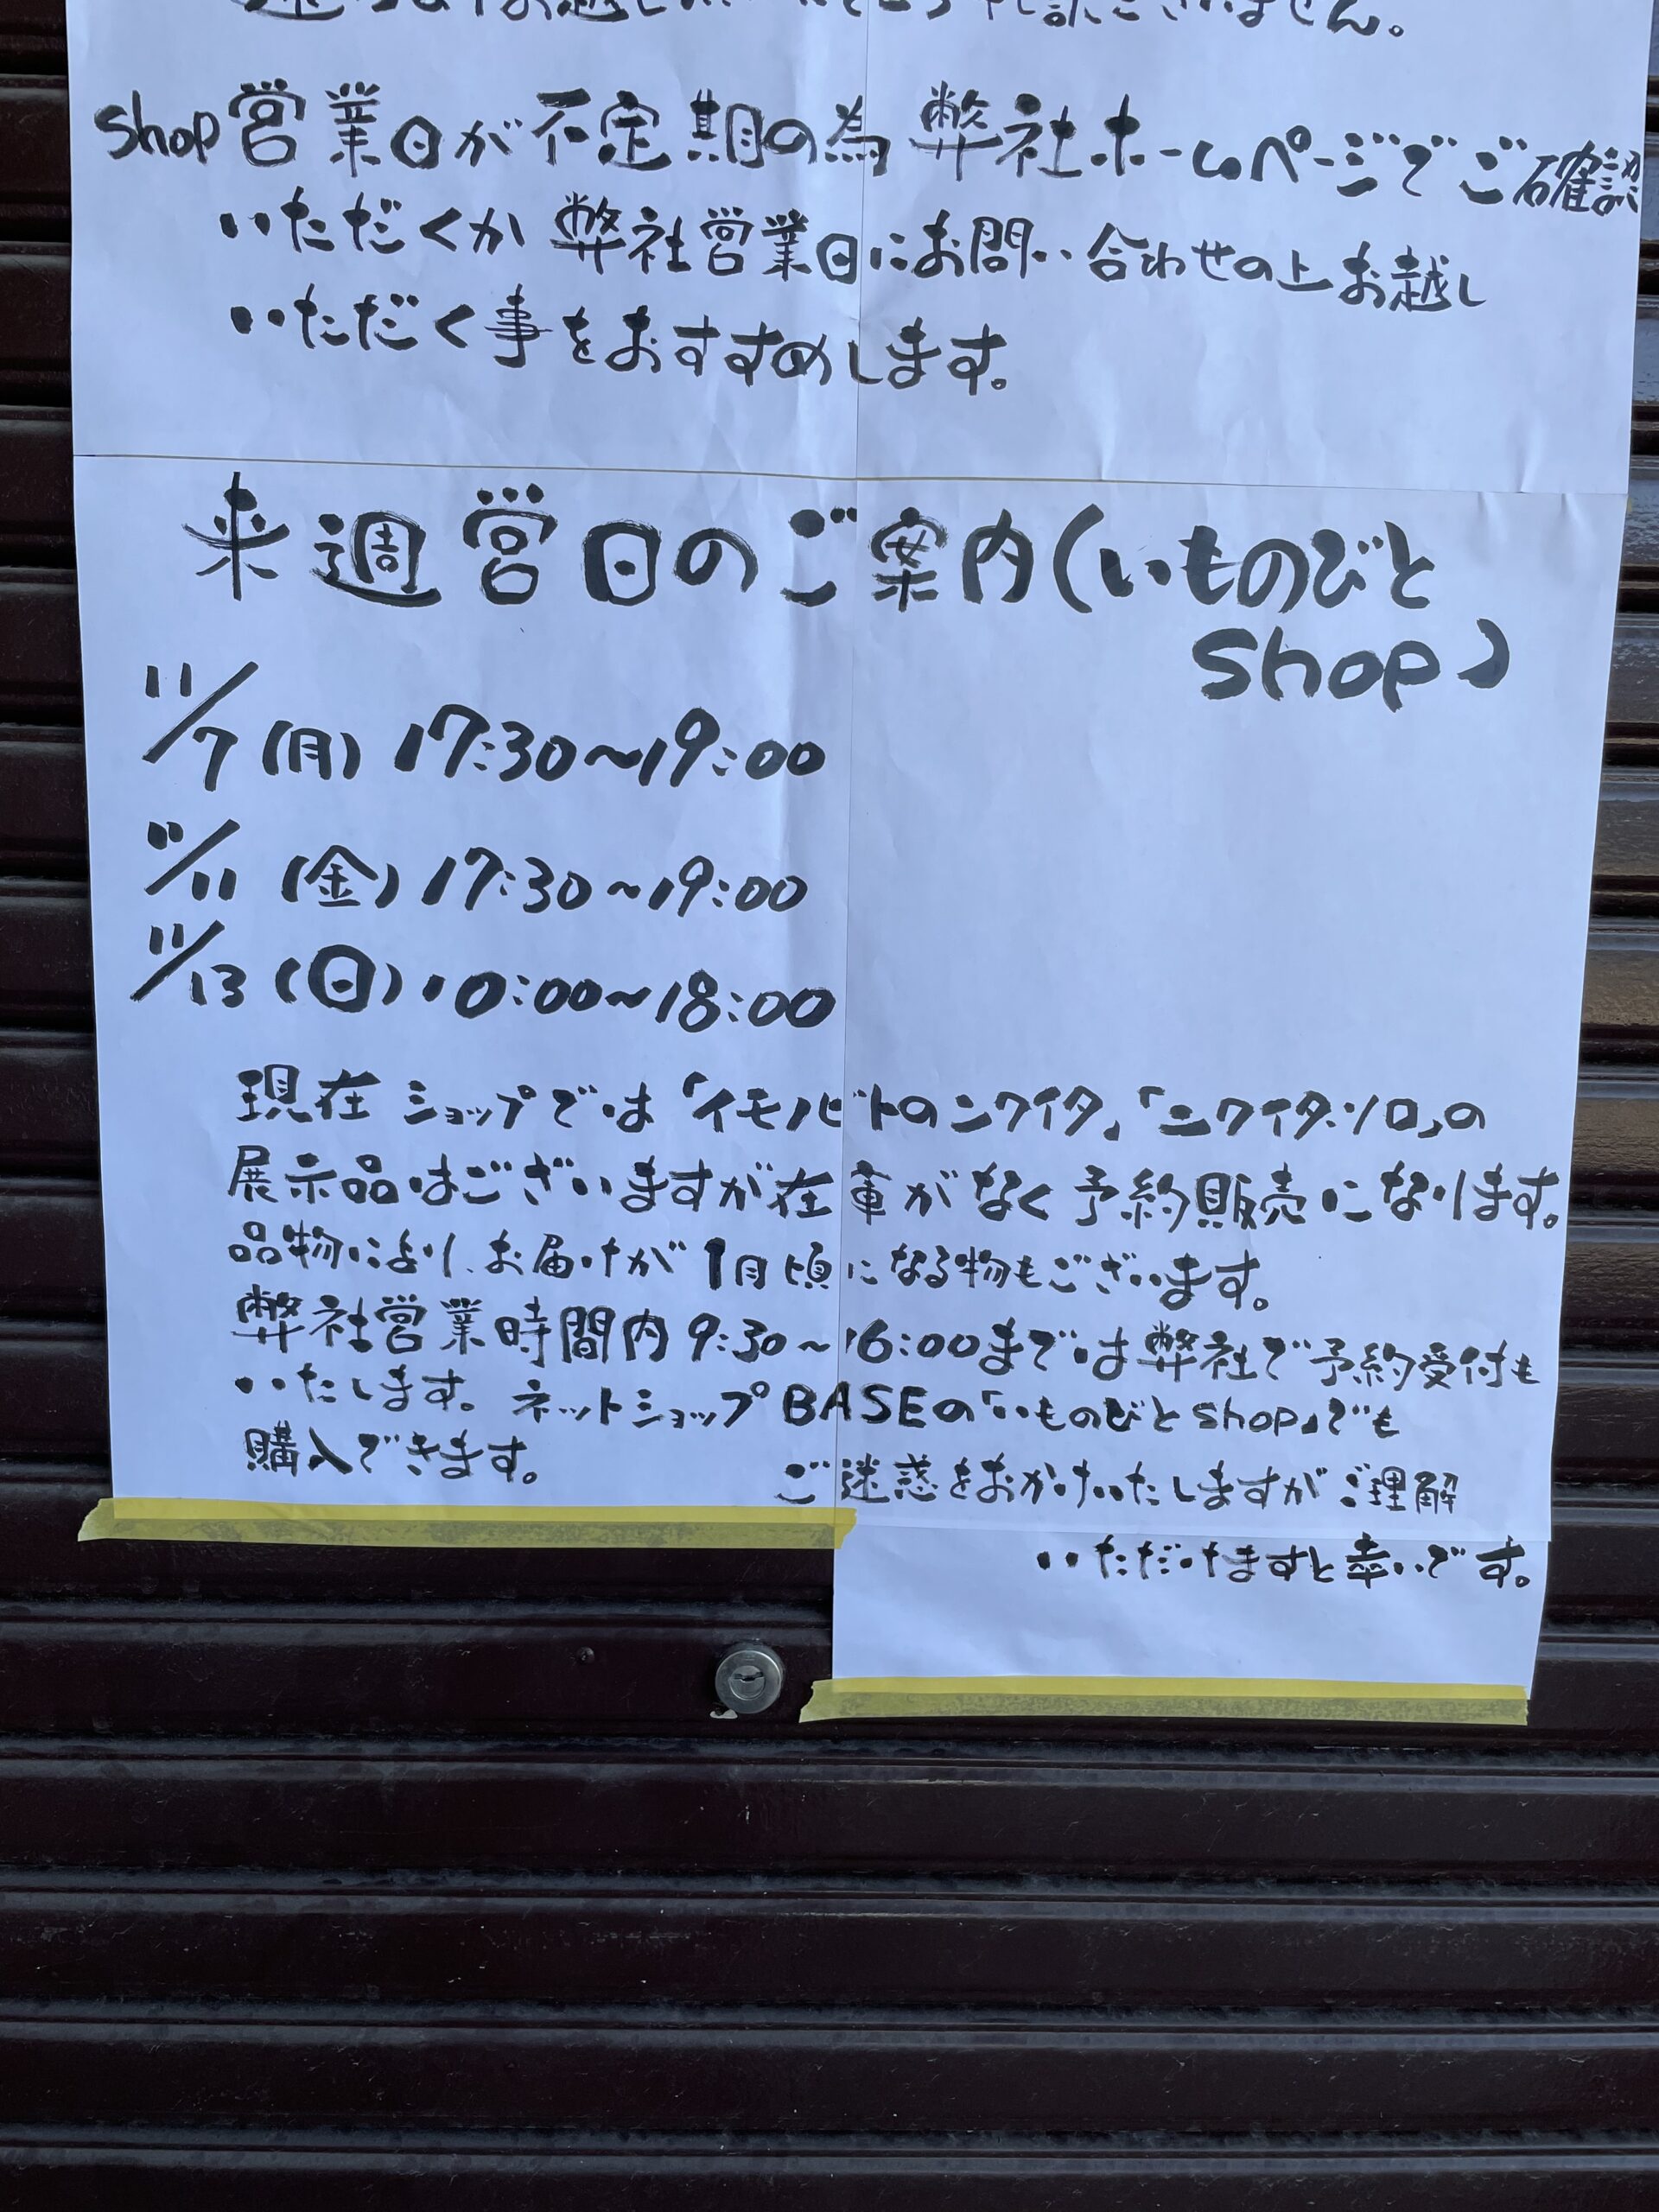 お越し
ございません。
shop営業日が不定期の為弊社ホームページでご確認
いただくか弊社営業日にお問い合わせの上お越し
いただく事をおすすめします。
来週営日のご案内(いものびと
shop)
11/7(月)17:30~19:00
11/11(金)17:30~19:00
11/13(日)10:00~18:00
現在ショップでは「イモノビトのニクイタ」「ニクイタ・ソロ」の
展示品はございますが在庫がなく予約販売になります。
品物により、お届けが1月頃になる物もございます。
弊社営業時間内9:30~16:00までは弊社で予約受付も
いたします。ネットショップBASEの「いものびとshop」でも
購入できます。
ご迷惑をおかけいたしますがご理解
いただけますと幸いです。